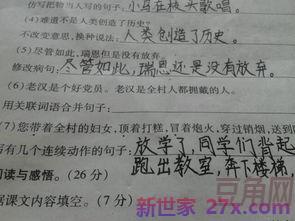 仿写把物当人写的句子：小鸟在枝头歌唱。
(4)难道不是人类创造了历史？
不改变意思，换种说法：人类创造了历史。
(5)尽管如此，瑞恩但是没有放弃。
修改病句：尽管如此，瑞恩还是没有放弃。
(6)老汉是个好党员。老汉是人人都拥戴的人。
用关联词语合并句子：
(7)您带着全村的妇女，顶着打糕，冒着炮火，穿过硝烟，送到
写有几个连续动作的句子：放学了，同学们背起
跑出教室，奔下楼梯，
阅读与感悟。(26 分)
据课文内容填空。(7 分)
豆角网
新世家 27x.com